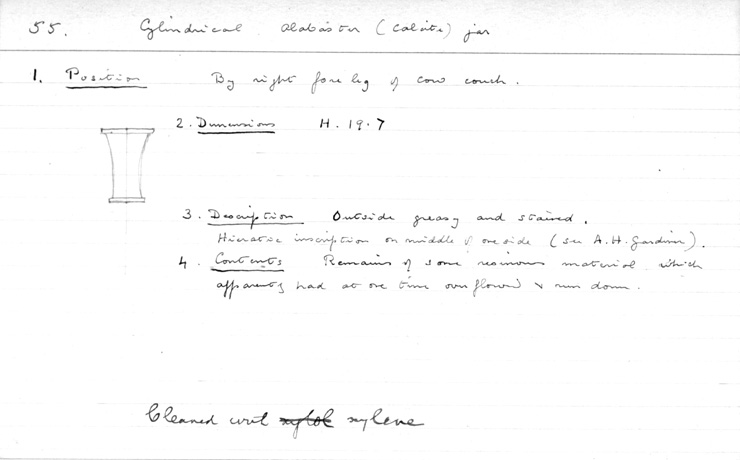 55. Cylindrical alabaster (calcite) jar
1. Position By right fore leg of cow couch.
2. Dimensions H. 19.7
3. Description Outside greasy and stained.
Hieratic inscription on middle of one side (see A.H. Gardiner).
4. Contents Remains of some resinous material which
apparently had at one time overflowed & run down.
Cleaned with xylol xylene